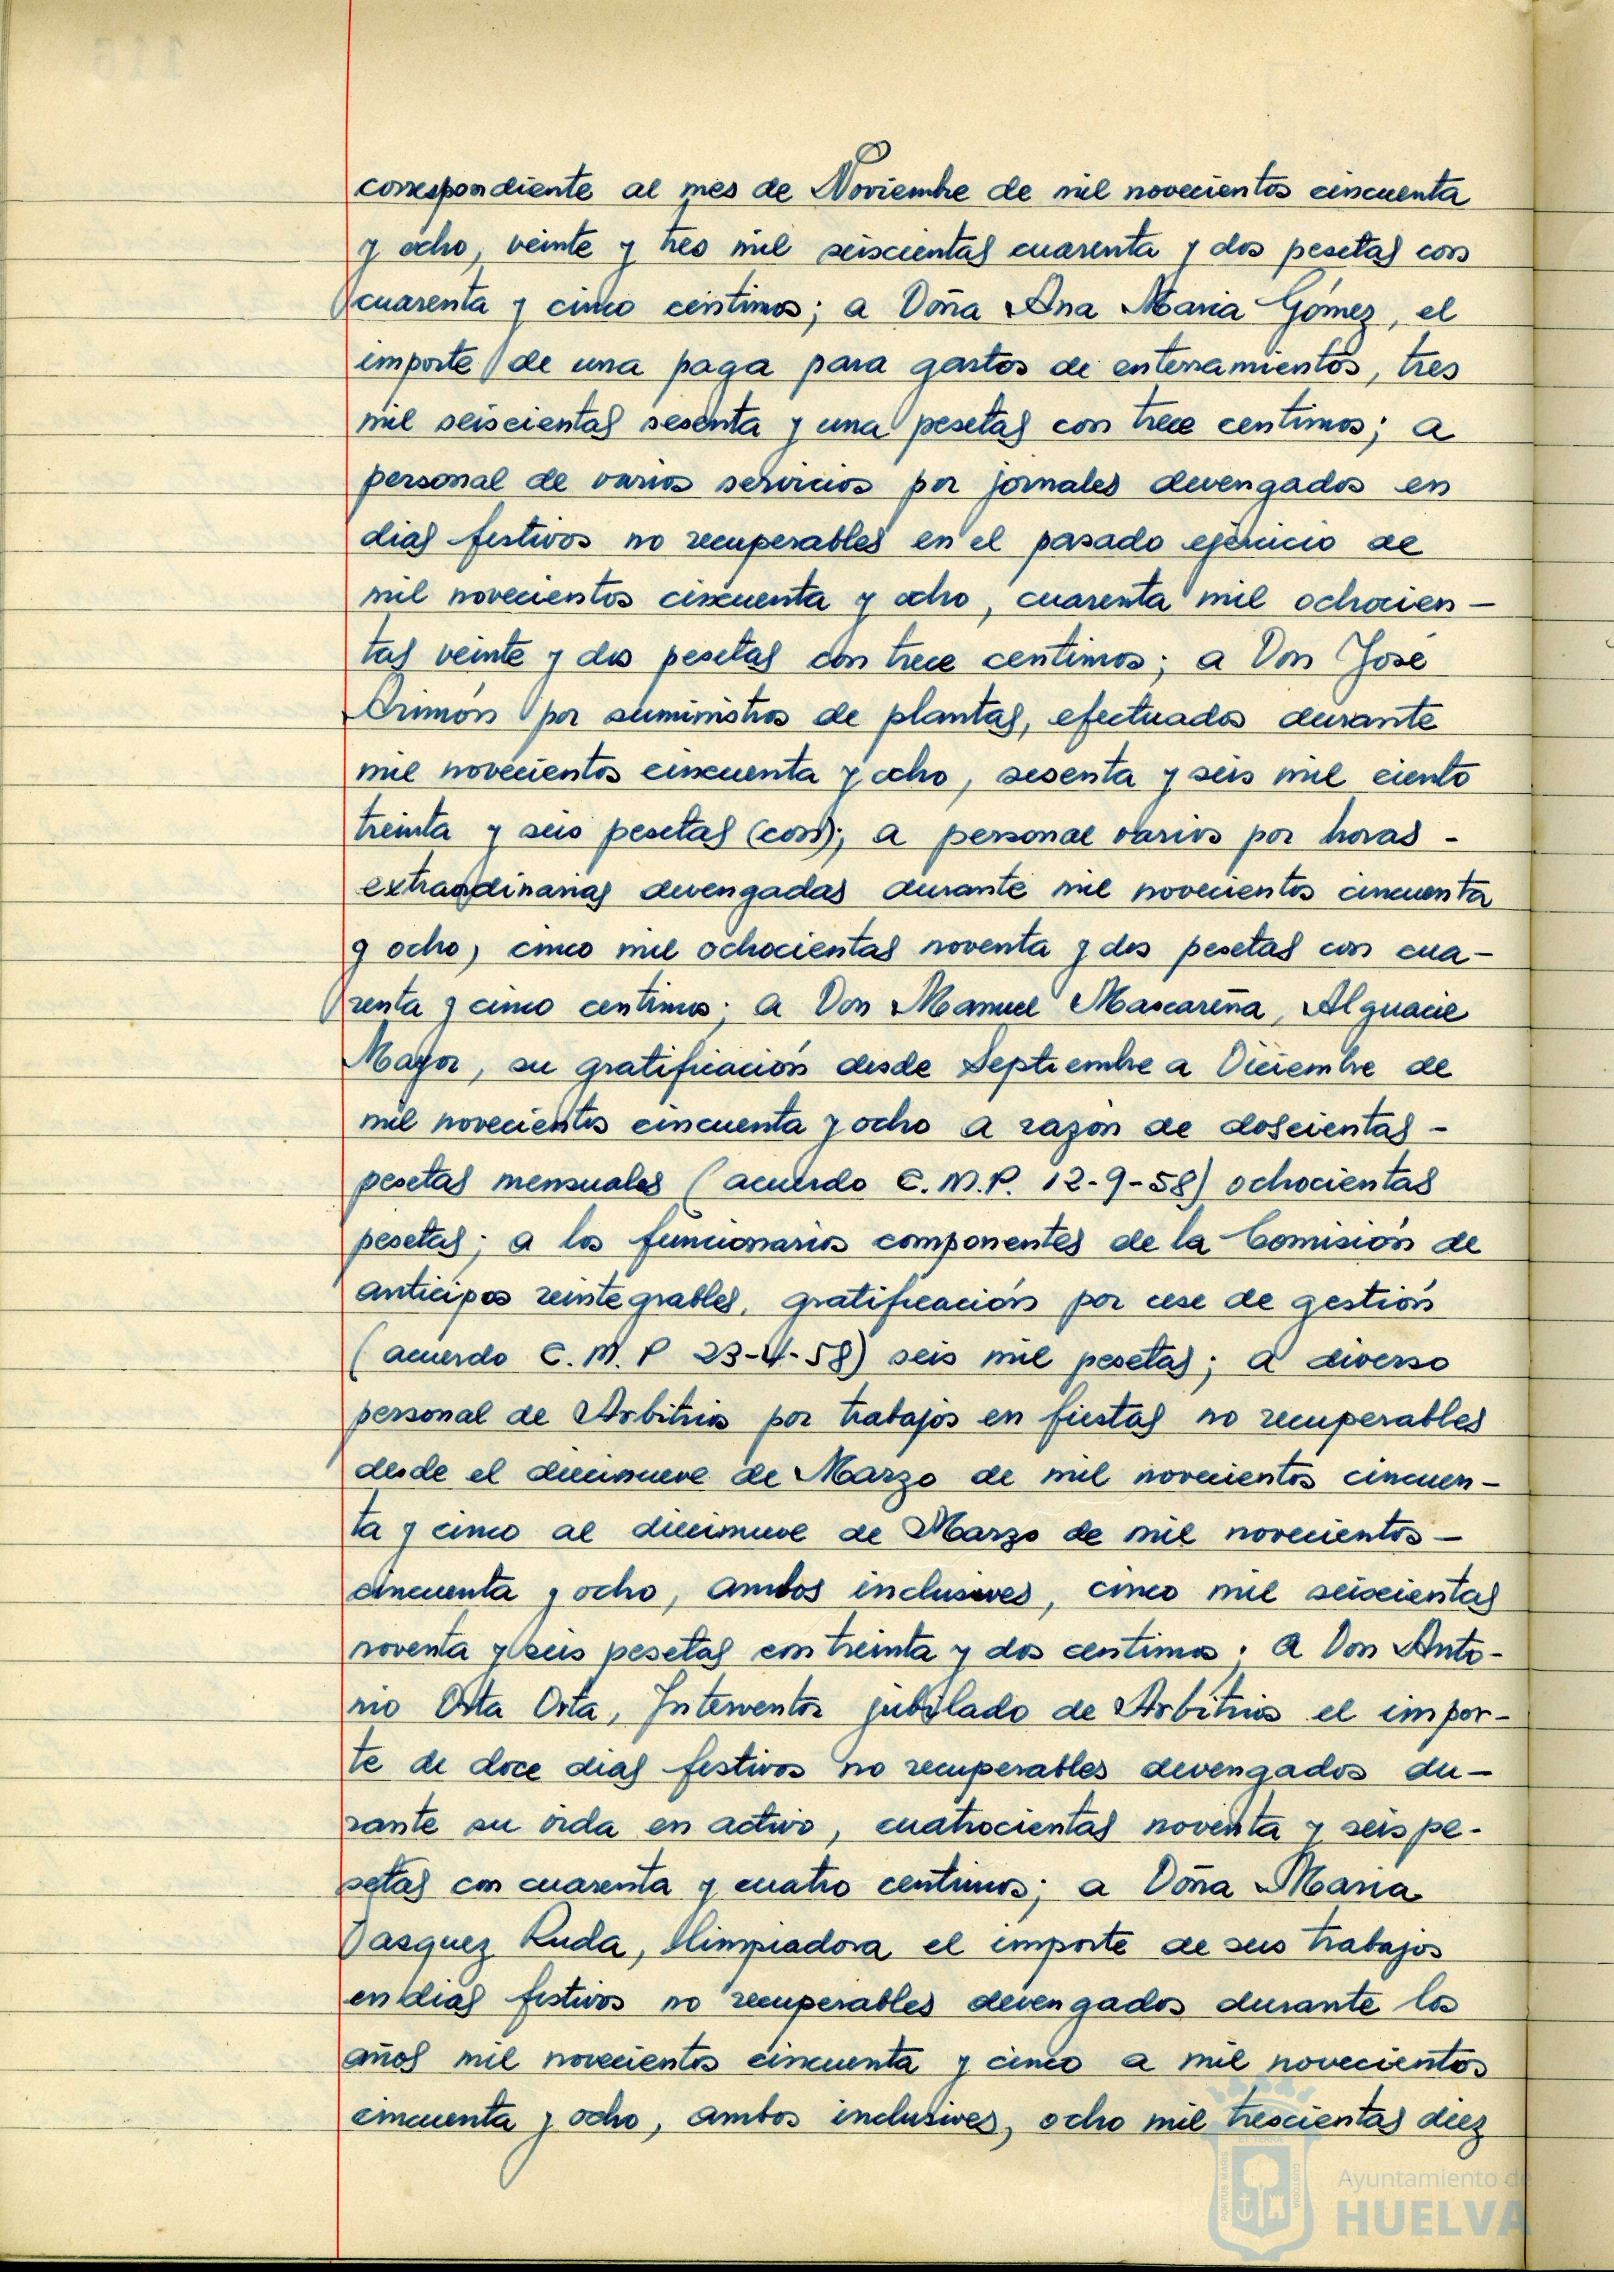 correspondiente al mes de Noviembre de mil novecientos cincuenta
y ocho, veinte y tres mil seiscientas cuarenta y dos pesetas con
cuarenta y cinco centimos; a Doña Ana Maria Gómez, el
importe de una paga para gastos de enterramientos, tres
mil seiscientas sesenta y una pesetas con trece centimos; a
personal de varios servicios por jornales devengados en
dias festivos no recuperables en el pasado ejercicio de
mil novecientos cincuenta y ocho, cuarenta mil ochocien-
tas veinte y dos pesetas con trece centimos; a Don José
Arimón por suministros de plantas, efectuados durante
mil novecientos cincuenta y ocho, sesenta y seis mil ciento
treinta y seis pesetas (con); a personal varios por horas -
extraordinarias devengadas durante mil novecientos cincuenta
y ocho, cinco mil ochocientas noventa y dos pesetas con cua-
renta y cinco centimos; a Don Manuel Mascareña, Alguacil
Mayor, su gratificación desde Septiembre a Diciembre de
mil novecientos cincuenta y ocho a razón de doscientas -
pesetas mensuales (acuerdo C.M.P. 12-9-58) ochocientas
pesetas; a los funcionarios componentes de la Comisión de
anticipos reintegrables, gratificación por cese de gestión
(acuerdo C.M.P 23-4-58) seis mil pesetas; a diverso
personal de Arbitrios por trabajos en fiestas no recuperables
desde el diecinueve de Marzo de mil novecientos cincuen-
ta y cinco al diecinueve de Marzo de mil novecientos -
cincuenta y ocho, ambos inclusives, cinco mil seiscientas
noventa y seis pesetas con treinta y dos centimos; a Don Anto-
nio Orta Orta, Interventor jubilado de Arbitrios el impor-
te de doce dias festivos no recuperables devengados du-
rante su vida en activo, cuatrocientas noventa y seis pe-
setas con cuarenta y cuatro centimos; a Doña Maria
Vasquez Ruda, limpiadora el importe de sus trabajos
en dias festivos no recuperables devengados durante los
años mil novecientos cincuenta y cinco a mil novecientos
cincuenta y ocho, ambos inclusives, ocho mil trescientas diez
PORTUS MARIS
CUSTODIA
Ayuntamiento de
HUELVA